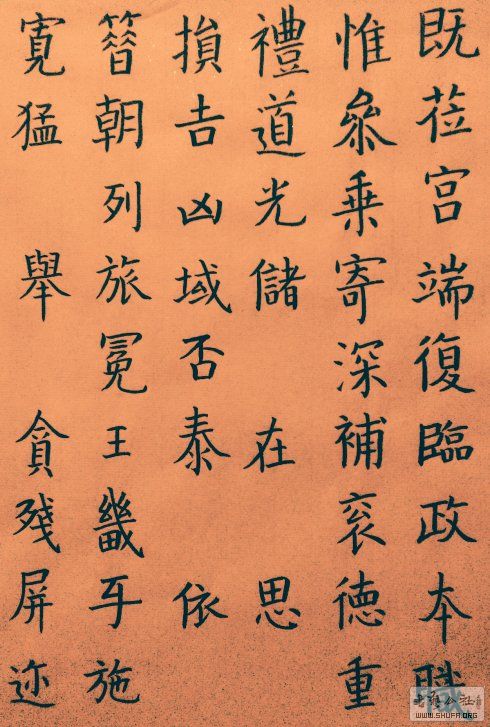 既莅宫端復臨政本職
惟叅乗寄深補衮德重
禮道光儲在思
損吉凶域否泰依
簪朝列旅冕王畿互施
寬猛舉貪殘屏迹
WWW.SHUFA.ORG